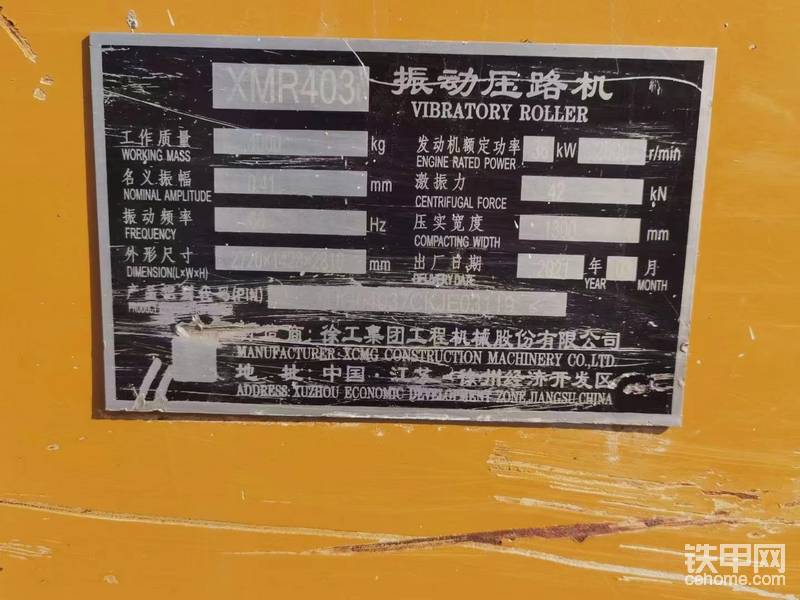 XMR403 振动压路机
VIBRATORY ROLLER
工作质量 kg 发动机额定功率 kW r/min
WORKING MASS ENGINE RATED POWER
名义振幅 0.41 mm 激振力 42 kN
NOMINAL AMPLITUDE CENTRIFUGAL FORCE
振动频率 Hz 压实宽度 1300 mm
FREQUENCY COMPACTING WIDTH
外形尺寸 mm 出厂日期 2021 年 月
DIMENSION(L×W×H) DELIVERY DATE YEAR MONTH
(PIN)
徐工集团工程机械股份有限公司
MANUFACTURER: XCMG CONSTRUCTION MACHINERY CO.,LTD.
地 址: 中国·江苏 徐州经济开发区
ADDRESS: XUZHOU ECONOMIC DEVELOPMENT ZONE,JIANGSU,CHINA
铁甲网
cehome.com